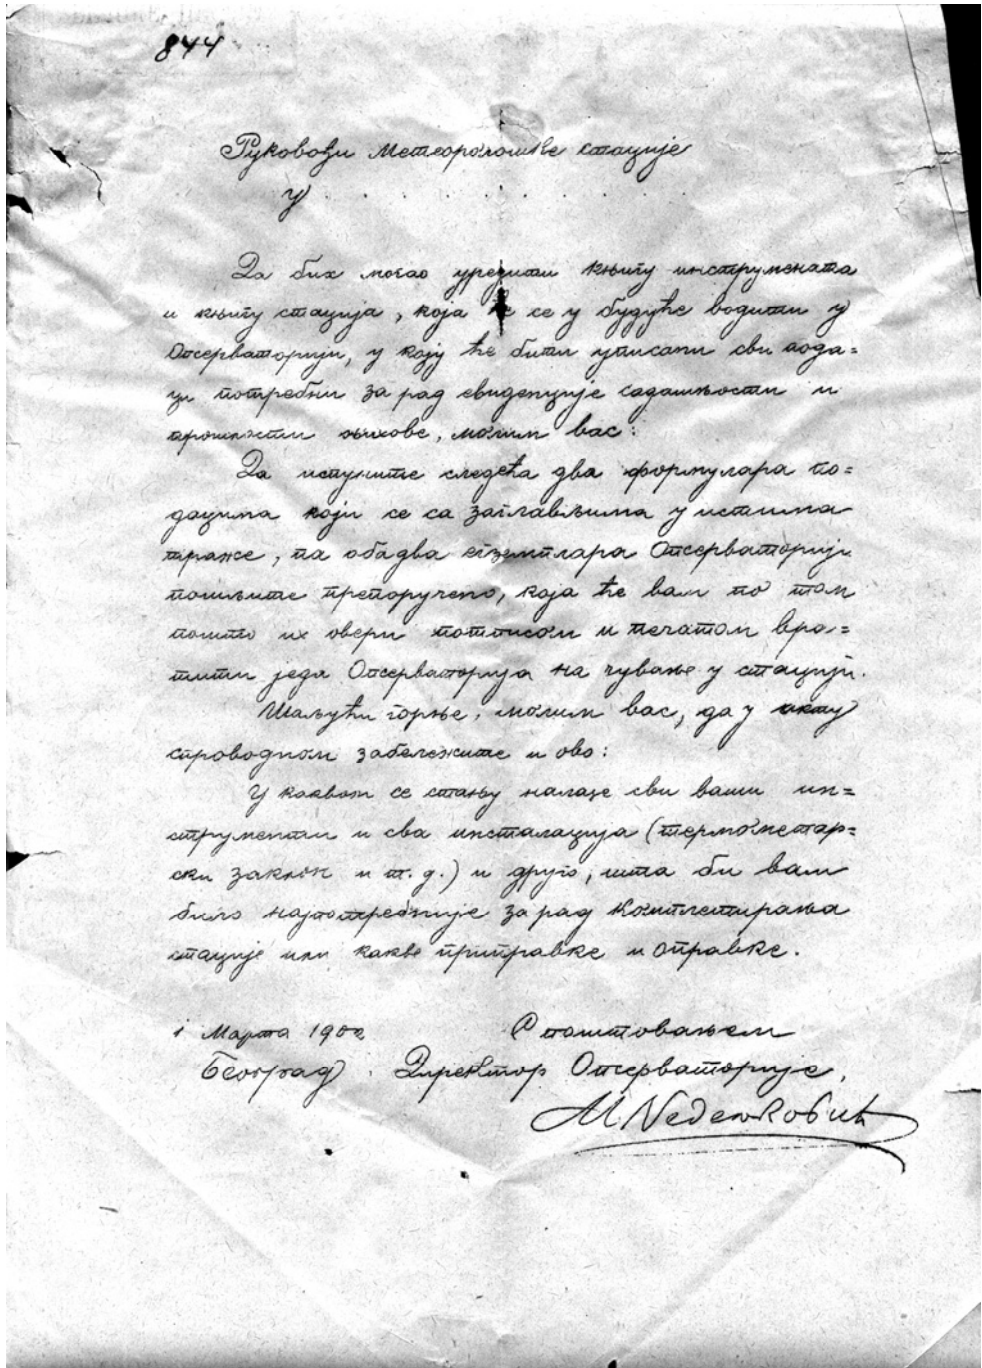 844
Руковођи Метеоролошке стације
у . . . . . . . . .
Да бих могао уредити књигу инструмената
и књигу стација, која ће се у будуће водити у
Опсерваторији, у коју ће бити уписани сви пода=
ци потребни за рад евиденције садашњости и
прошлости њихове, молим вас:
Да испуните следећа два формулара по=
дацима који се са заглављима у истима
траже, па обадва егземплара Опсерваторији
пошљите препоручено, која ће вам по том
пошто их овери потписом и печатом вра=
тити један Опсерваторија на чување у стацији.
Шаљући горње, молим вас, да у акту
спроводном забележите и ово:
У каквом се стању налазе сви ваши ин=
струменти и сва инсталација (термометар=
ски заклон и т. д.) и друго, шта би вам
било најпотребније за рад комплетирања
стације или какве приправке и оправке.
1 Марта 1902 С поштовањем
Београд. Директор Опсерваторије,
М. Недељковић